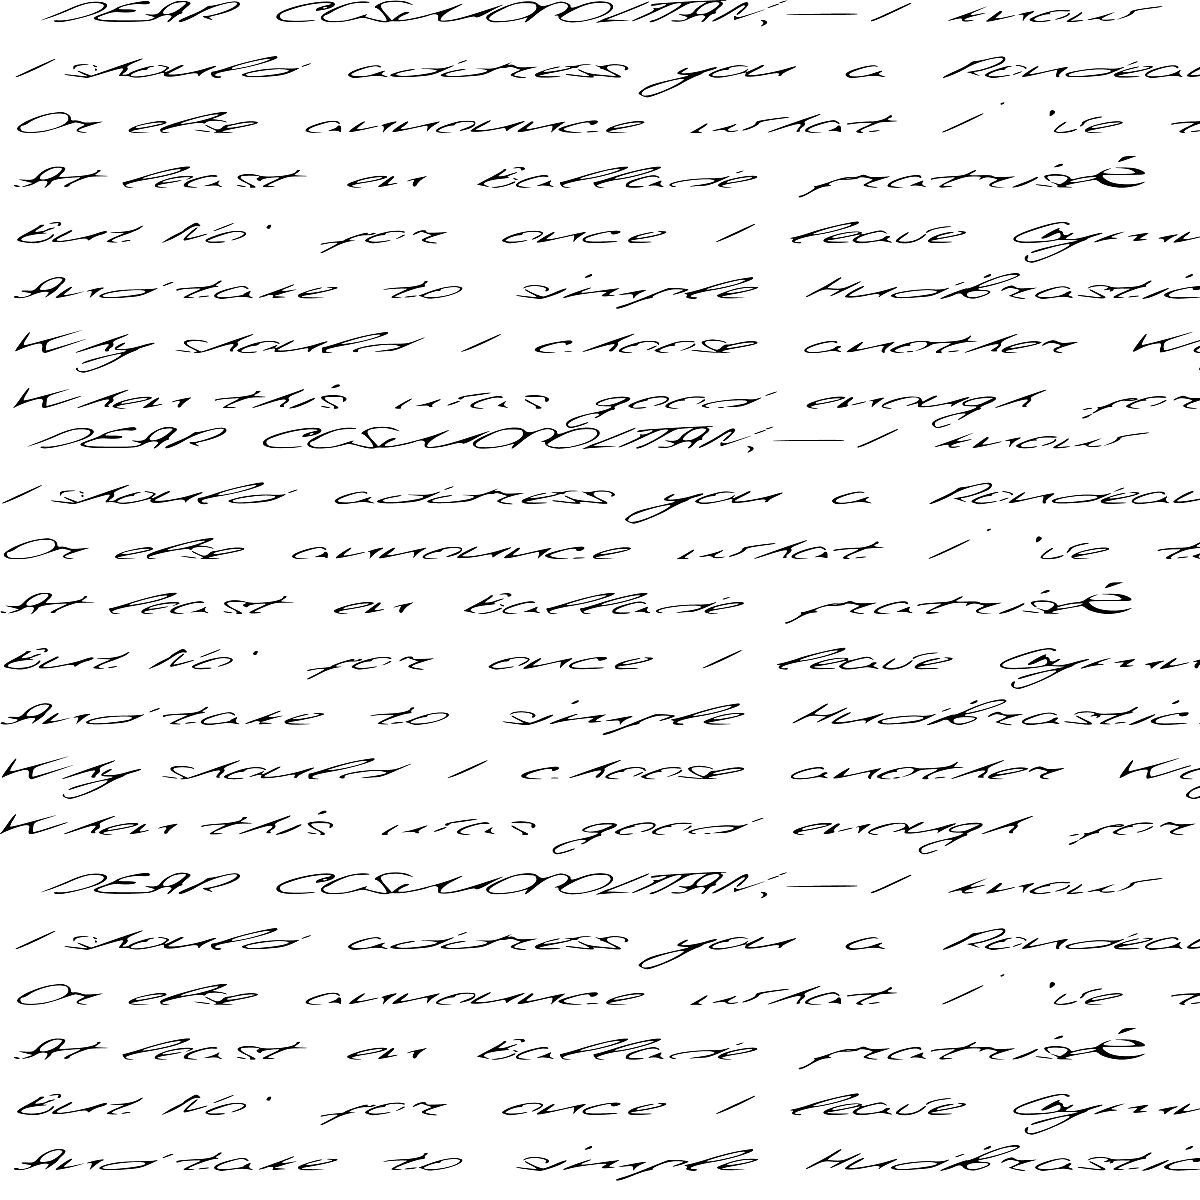 DEAR COSMOPOLITAN,—I know
I should address you a Rondeau
Or else announce what I 've t
At least en Ballade fratrisé
But No for once I leave Gymn
And take to simple Hudibrastic
Why should I choose another W
When this was good enough for
DEAR COSMOPOLITAN,—I know
I should address you a Rondeau
Or else announce what I 've to
At least en Ballade fratrisé
But No for once I leave Gymn
And take to simple Hudibrastic
Why should I choose another Way
When this was good enough for
DEAR COSMOPOLITAN,—I know
I should address you a Rondeau
Or else announce what I 've t
At least en Ballade fratrisé
But No for once I leave Gymn
And take to simple Hudibrastic